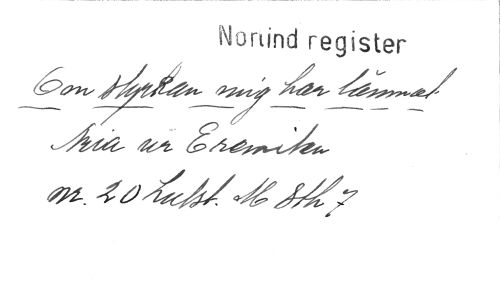 Norlind register
Om styrkan mig har lämnat
Aria ur Eremiten
nr. 20 Lutst. M 8th 7